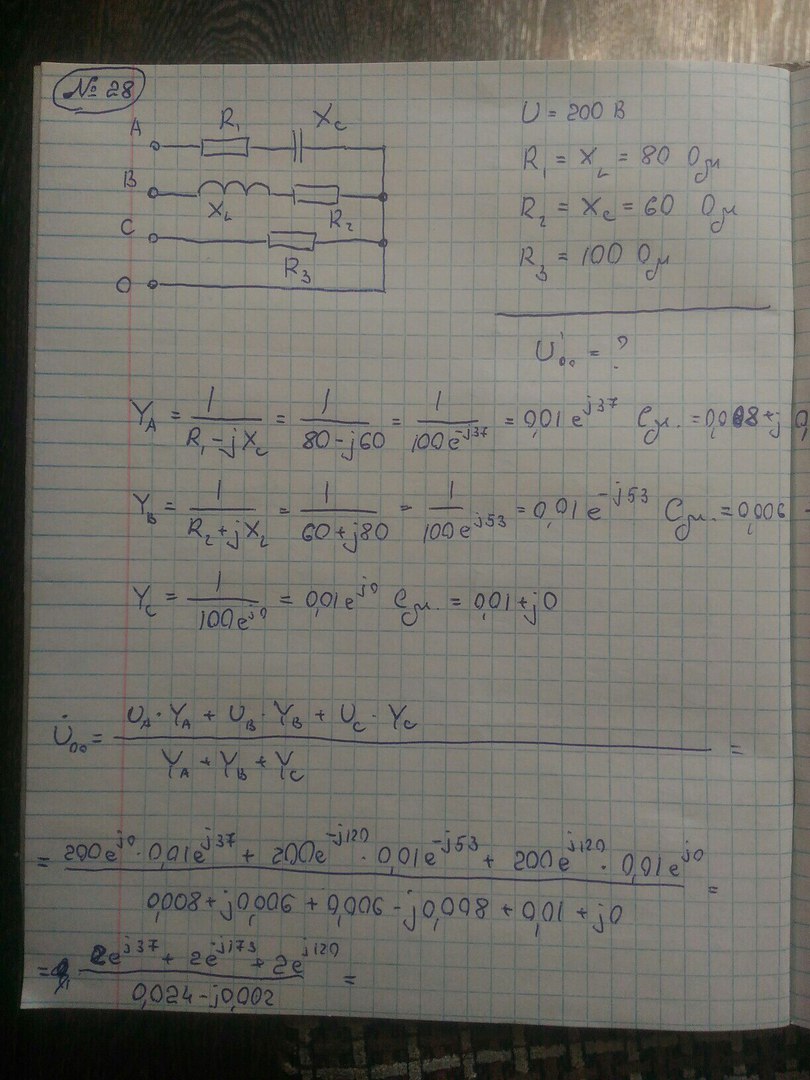 № 28
A R₁ X_C
B X_L R₂
C R₃
O
U = 200 В
R₁ = X_L = 80 Ом
R₂ = X_C = 60 Ом
R₃ = 100 Ом
U̇₀₀ = ?
Y_A = 1/(R₁-jX_C) = 1/(80-j60) = 1/(100e^(-j37)) = 0,01 e^(j37) См. = 0,008+j 0,
Y_B = 1/(R₂+jX_L) = 1/(60+j80) = 1/(100e^(j53)) = 0,01 e^(-j53) См. = 0,006 -
Y_C = 1/(100e^(j0)) = 0,01e^(j0) См. = 0,01+j0
U̇₀₀ = (U_A·Y_A + U_B·Y_B + U_C·Y_C)/(Y_A + Y_B + Y_C) =
= (200e^(j0)·0,01e^(j37) + 200e^(-j120)·0,01e^(-j53) + 200e^(j120)·0,01e^(j0))/(0,008+j0,006+0,006-j0,008+0,01+j0) =
= (2e^(j37) + 2e^(-j173) + 2e^(j120))/(0,024-j0,002) =